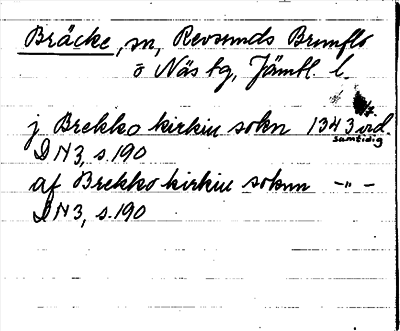 Bräcke, sn, Revsunds Brunflo
o Näs tg, Jämtl. l.
j Brekko kirkiu sokn 1343 vid.
samtidig
DN 3, s. 190
af Brekko kirkiu soknn -"-
DN 3, s. 190